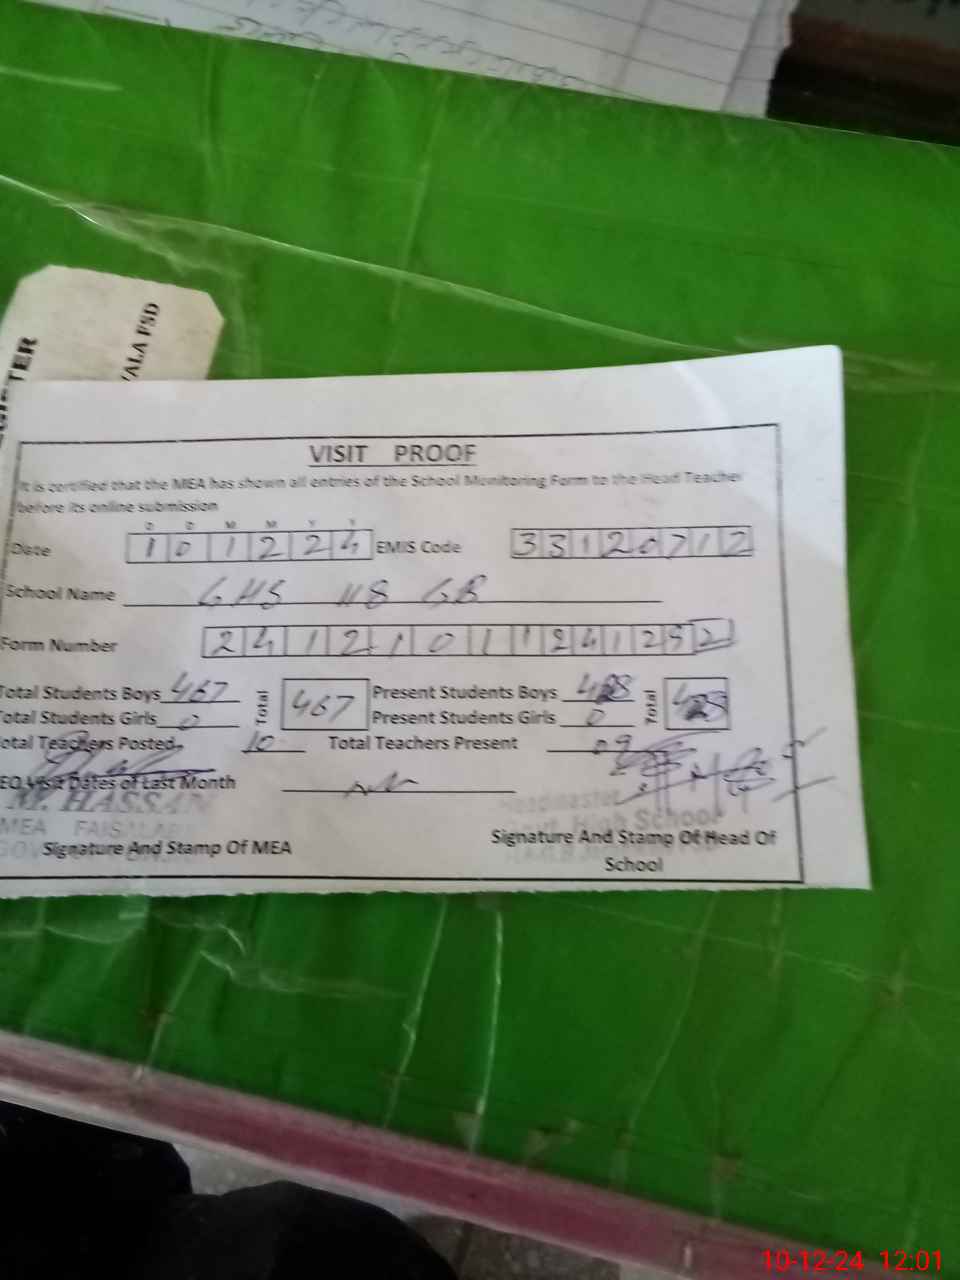 GISTER
ALA FSD
VISIT PROOF
It is certified that the MEA has shown all entries of the School Monitoring Form to the Head Teacher
before its online submission
D D M M Y Y
Date 1 0 1 2 2 4 EMIS Code 3 3 1 2 0 7 1 2
School Name GHS 118 GB
Form Number 2 4 1 2 1 0 1 1 2 4 1 2 5 2
Total Students Boys 467 Total 467 Present Students Boys 428 Total 428
Total Students Girls 0 Present Students Girls 0
Total Teachers Posted 10 Total Teachers Present 09
EO Visit Dates of Last Month
M. HASSAN
MEA FAISALABAD
Headmaster
Govt. High School
Signature And Stamp Of MEA
Signature And Stamp Of Head Of
School
10-12-24 12:01